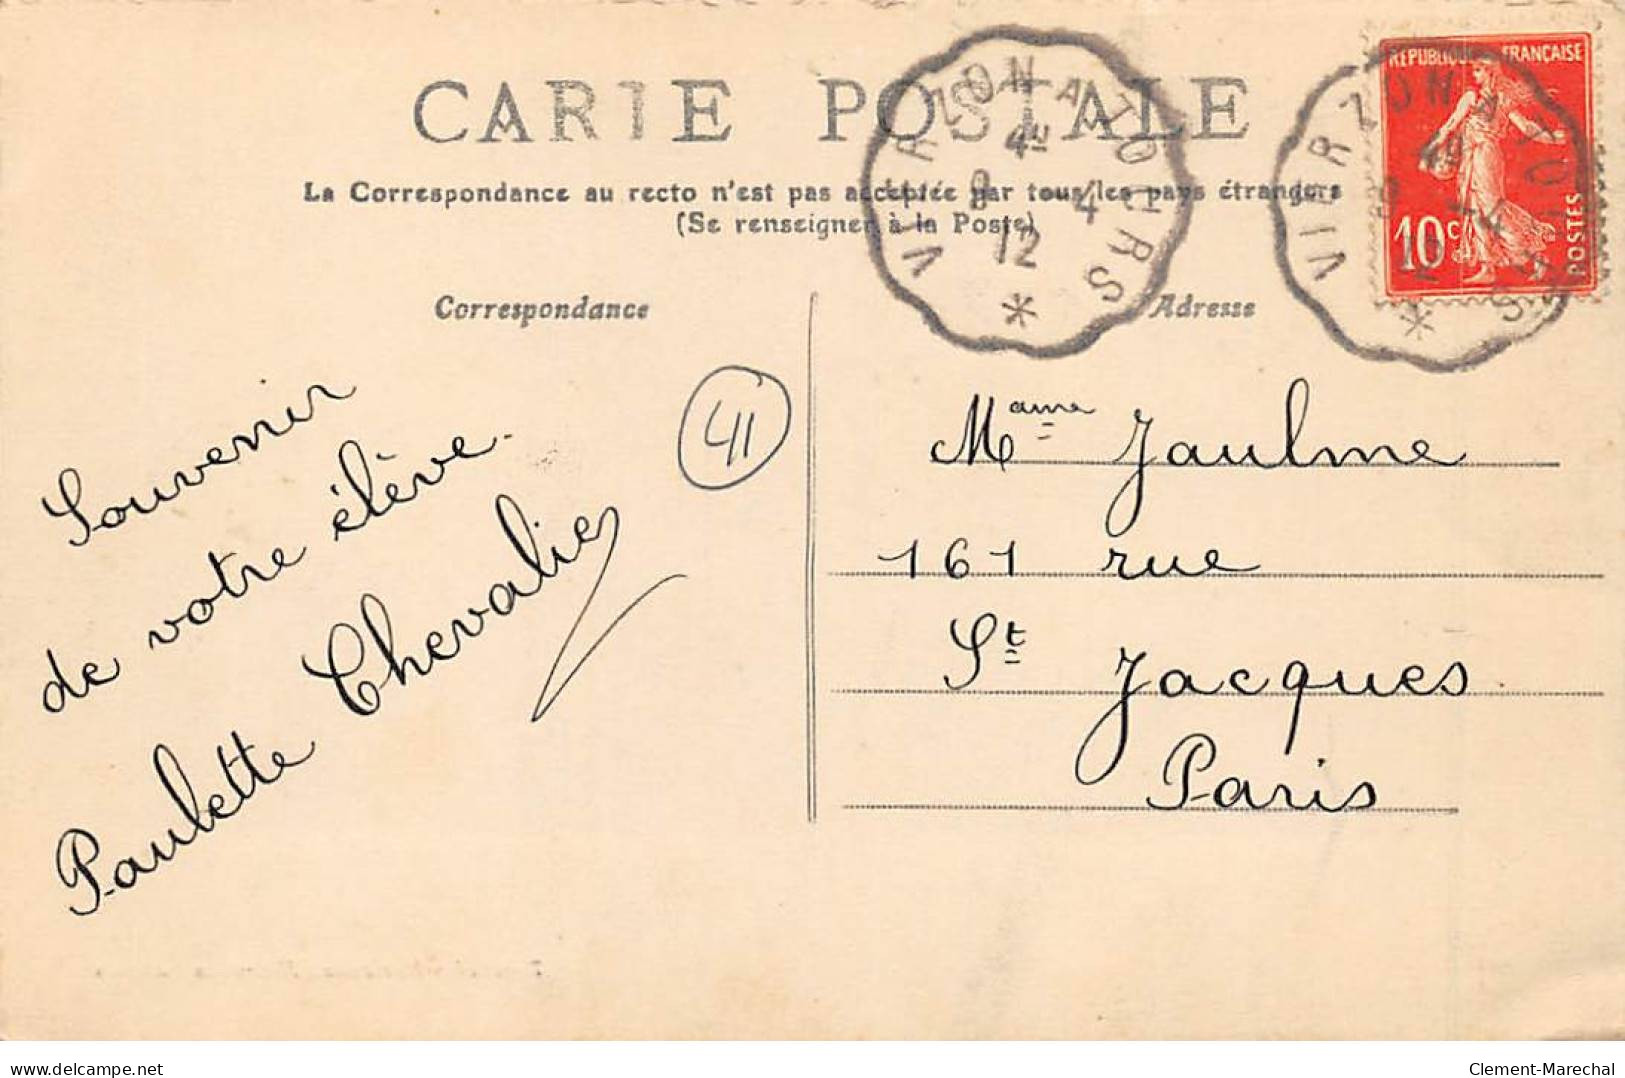 CARTE POSTALE
La Correspondance au recto n'est pas acceptée par tous les pays étrangers
(Se renseigner à la Poste)
Correspondance
Adresse
VIERZON A TOURS
4
12
VIERZON A TOURS
RÉPUBLIQUE FRANÇAISE
10c
POSTES
41
Souvenir
de votre élève.
Paulette Chevalier
Mame Jaulme
161 rue
St Jacques
Paris
delcampe.net
Clement-Marechal